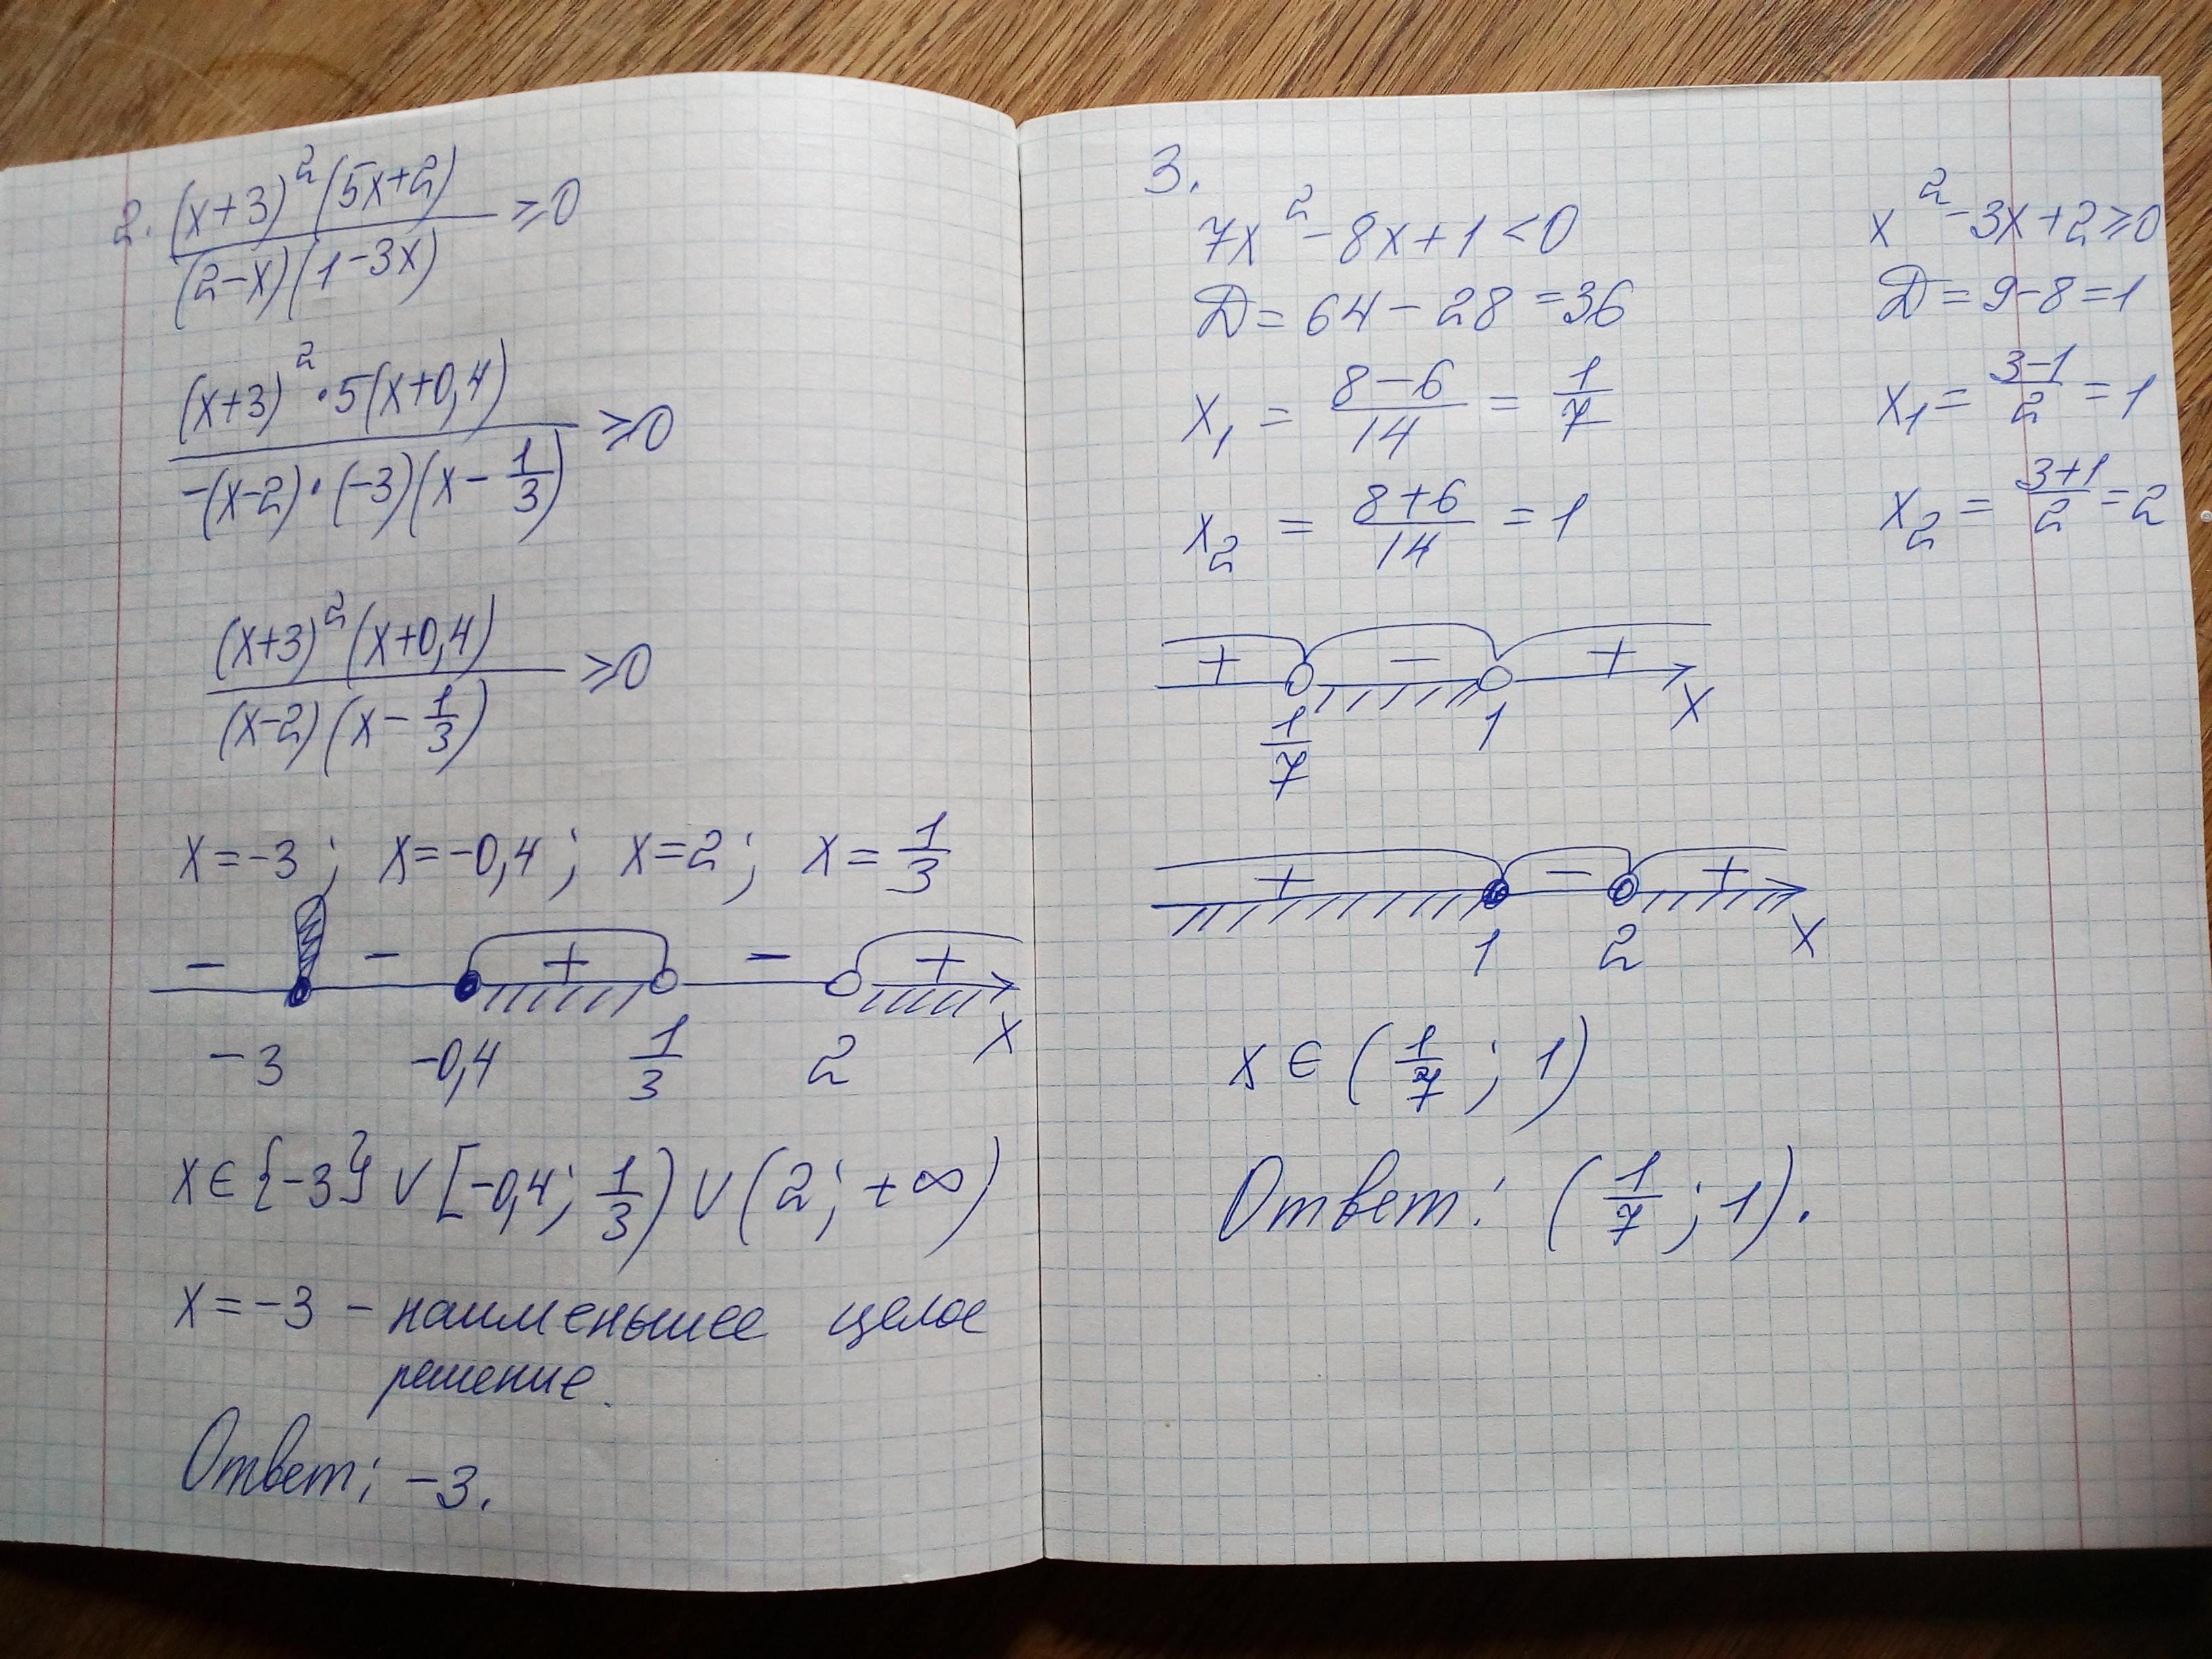 2. (x+3)²(5x+2) / (2-x)(1-3x) ≥0
(x+3)²·5(x+0,4) / -(x-2)·(-3)(x-1/3) ≥0
(x+3)²(x+0,4) / (x-2)(x-1/3) ≥0
x=-3; x=-0,4; x=2; x=1/3
- - + - +
-3 -0,4 1/3 2 x
x∈{-3}∪[-0,4; 1/3)∪(2; +∞)
x=-3 - наименьшее целое
решение.
Ответ: -3.
3.
7x²-8x+1<0
D=64-28=36
x₁ = 8-6/14 = 1/7
x₂ = 8+6/14 = 1
x²-3x+2≥0
D=9-8=1
x₁= 3-1/2 =1
x₂= 3+1/2 =2
+ - +
1/7 1 x
+ - +
1 2 x
x∈(1/7; 1)
Ответ: (1/7; 1).